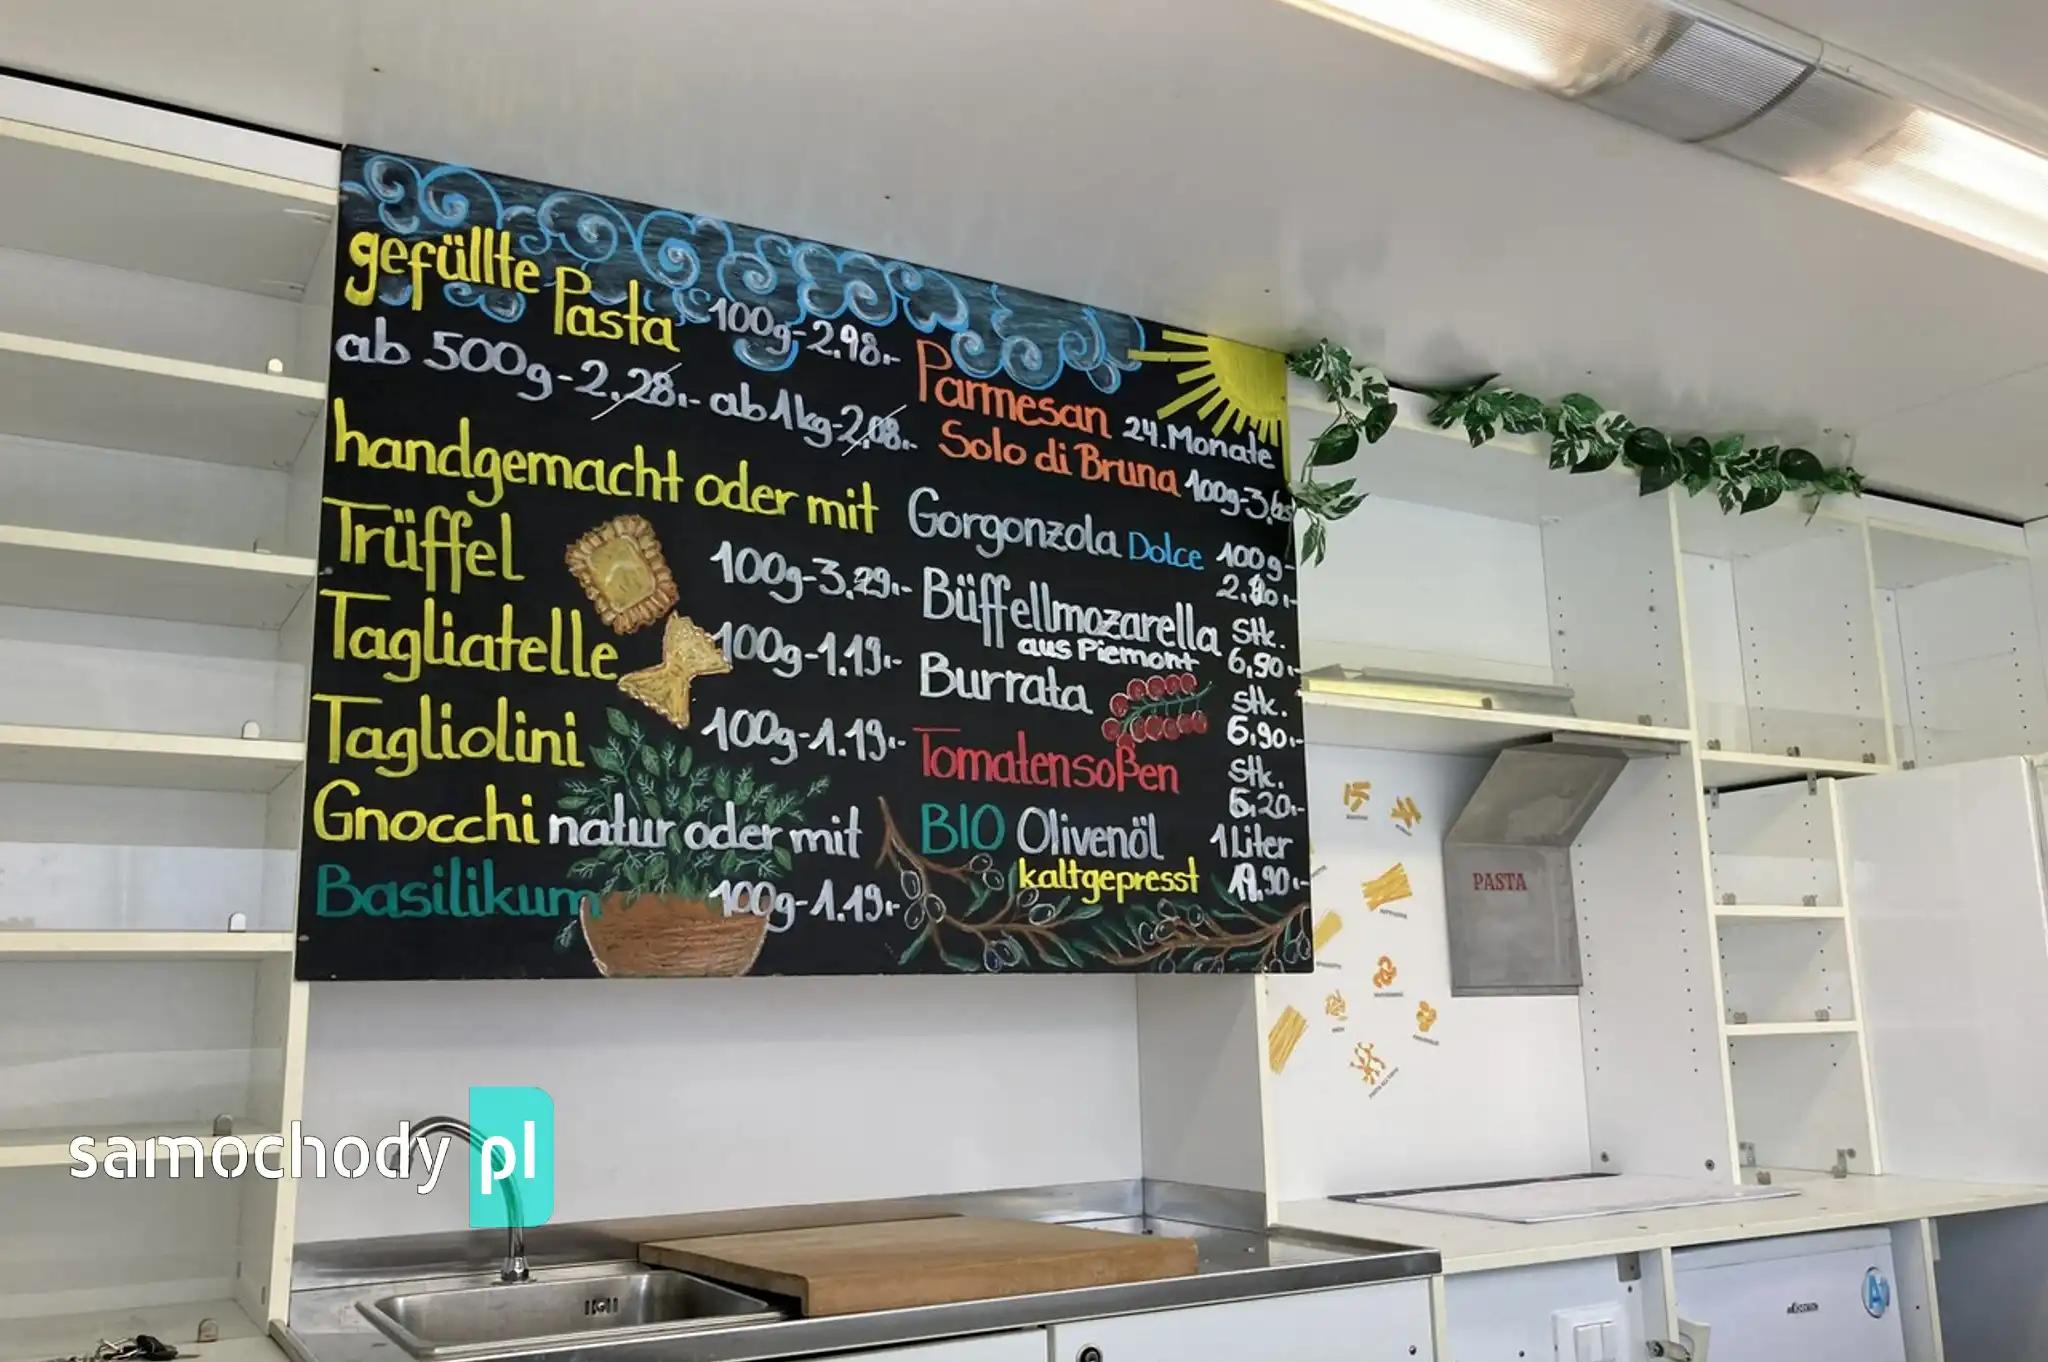 gefüllte Pasta 100g-2.98.-
ab 500g-2.28.- ab 1kg-2.08.-
handgemacht oder mit
Trüffel 100g-3.29.-
Tagliatelle 100g-1.19.-
Tagliolini 100g-1.19.-
Gnocchi natur oder mit
Basilikum 100g-1.19.-
Parmesan 24.Monate
Solo di Bruna 100g-3.
Gorgonzola Dolce 100g-
Büffellmozarella Stk.
aus Piemont 6,90.-
Burrata Stk.
6,90.-
Tomatensoßen Stk.
5,20.-
BIO Olivenöl 1 Liter
kaltgepresst
PASTA
samochody pl